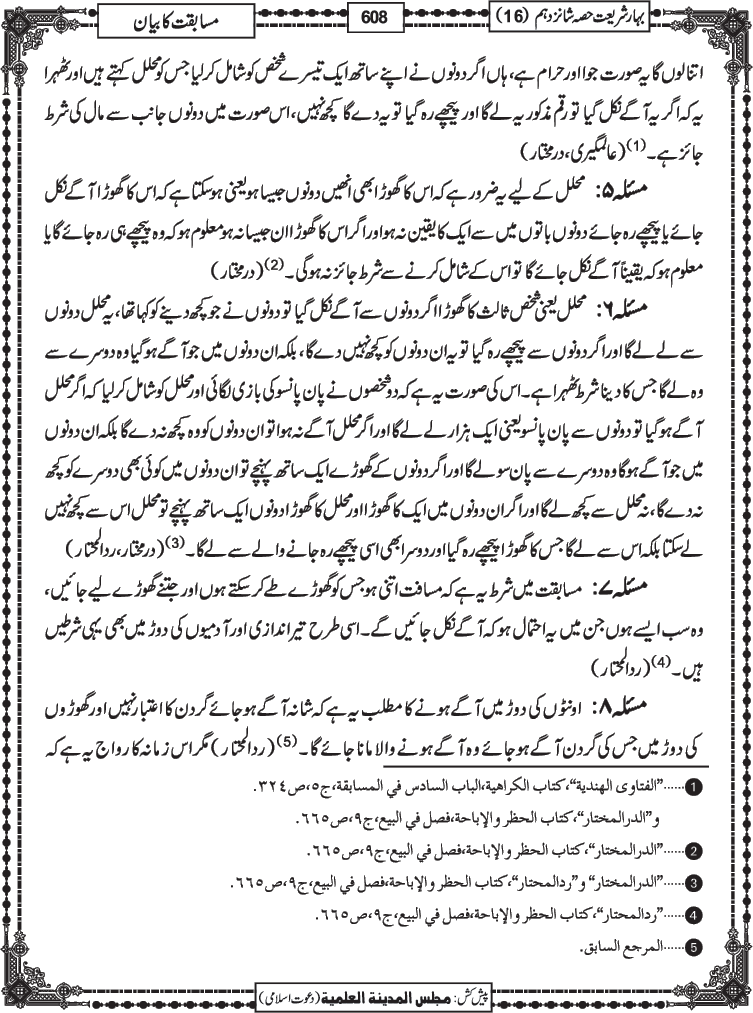 بہار شریعت حصہ شانزدہم (16)
608
مسابقت کا بیان
اتنا لوں گا یہ صورت جوا اور حرام ہے، ہاں اگر دونوں نے اپنے ساتھ ایک تیسرے شخص کو شامل کرلیا جس کو محلل کہتے ہیں اور ٹھہرا
یہ کہ اگر یہ آگے نکل گیا تو رقم مذکور یہ لے گا اور پیچھے رہ گیا تو یہ دے گا کچھ نہیں، اس صورت میں دونوں جانب سے مال کی شرط
جائز ہے۔(1) (عالمگیری، درمختار)
مسئلہ ۵: محلل کے لیے یہ ضرور ہے کہ اس کا گھوڑا بھی انھیں دونوں جیسا ہو یعنی ہوسکتا ہے کہ اس کا گھوڑا آگے نکل
جائے یا پیچھے رہ جائے دونوں باتوں میں سے ایک کا یقین نہ ہو اور اگر اس کا گھوڑا ان جیسا نہ ہو معلوم ہو کہ وہ پیچھے ہی رہ جائے گا یا
معلوم ہو کہ یقیناً آگے نکل جائے گا تو اس کے شامل کرنے سے شرط جائز نہ ہوگی۔(2) (درمختار)
مسئلہ ۶: محلل یعنی شخص ثالث کا گھوڑا اگر دونوں سے آگے نکل گیا تو دونوں نے جو کچھ دینے کو کہا تھا، یہ محلل دونوں
سے لے لے گا اور اگر دونوں سے پیچھے رہ گیا تو یہ ان دونوں کو کچھ نہیں دے گا، بلکہ ان دونوں میں جو آگے ہو گیا وہ دوسرے سے
وہ لے گا جس کا دینا شرط ٹھہرا ہے۔ اس کی صورت یہ ہے کہ دو شخصوں نے پان پانسو کی بازی لگائی اور محلل کو شامل کرلیا کہ اگر محلل
آگے ہو گیا تو دونوں سے پان پانسو یعنی ایک ہزار لے لے گا اور اگر محلل آگے نہ ہوا تو ان دونوں کو وہ کچھ نہ دے گا بلکہ ان دونوں
میں جو آگے ہوگا وہ دوسرے سے پان سو لے گا اور اگر دونوں کے گھوڑے ایک ساتھ پہنچے تو ان دونوں میں کوئی بھی دوسرے کو کچھ
نہ دے گا، نہ محلل سے کچھ لے گا اور اگر ان دونوں میں ایک کا گھوڑا اور محلل کا گھوڑا دونوں ایک ساتھ پہنچے تو محلل اس سے کچھ نہیں
لے سکتا بلکہ اس سے لے گا جس کا گھوڑا پیچھے رہ گیا اور دوسرا بھی اسی پیچھے رہ جانے والے سے لے گا۔(3) (درمختار، ردالمحتار)
مسئلہ ۷: مسابقت میں شرط یہ ہے کہ مسافت اتنی ہو جس کو گھوڑے طے کرسکتے ہوں اور جتنے گھوڑے لیے جائیں،
وہ سب ایسے ہوں جن میں یہ احتمال ہو کہ آگے نکل جائیں گے۔ اسی طرح تیراندازی اور آدمیوں کی دوڑ میں بھی یہی شرطیں
ہیں۔(4) (ردالمحتار)
مسئلہ ۸: اونٹوں کی دوڑ میں آگے ہونے کا مطلب یہ ہے کہ شانہ آگے ہو جائے گردن کا اعتبار نہیں اور گھوڑوں
کی دوڑ میں جس کی گردن آگے ہو جائے وہ آگے ہونے والا مانا جائے گا۔(5) (ردالمحتار) مگر اس زمانہ کا رواج یہ ہے کہ
1 ......”الفتاوی الهندية“، کتاب الکراهية، الباب السادس في المسابقة، ج٥، ص٣٢٤.
و”الدرالمختار“، کتاب الحظر والإباحة، فصل في البيع، ج٩، ص٦٦٥.
2 ......”الدرالمختار“، کتاب الحظر والإباحة، فصل في البيع، ج٩، ص٦٦٥.
3 ......”الدرالمختار“ و”ردالمحتار“، کتاب الحظر والإباحة، فصل في البيع، ج٩، ص٦٦٥.
4 ......”ردالمحتار“، کتاب الحظر والإباحة، فصل في البيع، ج٩، ص٦٦٥.
5 ......المرجع السابق.
پیش کش: مجلس المدينة العلمية (دعوت اسلامی)